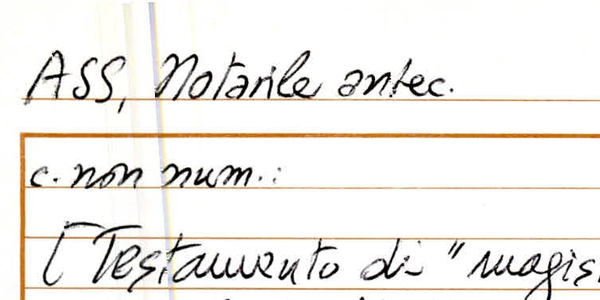 ASS, Notarile antec.
c. non num.:
[Testamento di "magis